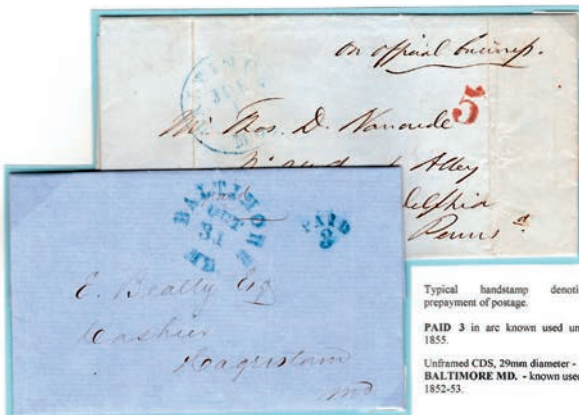 on official business.
BALTIMORE
5
Mr. Thos. D.
Alley
Penns
BALTIMORE
OCT
31
MD
PAID
3
E. Beatty Esq
Cashier
Hagerstown
Md
Typical handstamp denoti
prepayment of postage.
PAID 3 in arc known used un
1855.
Unframed CDS, 29mm diameter -
BALTIMORE MD. - known used
1852-53.